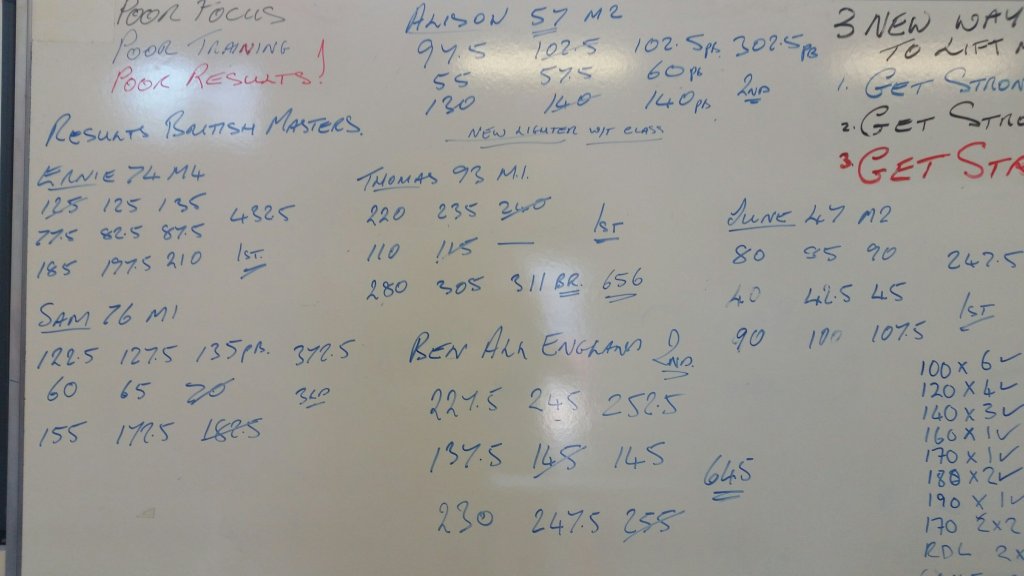 POOR FOCUS
POOR TRAINING
POOR RESULTS!
RESULTS BRITISH MASTERS.
ERNIE 74 M4
125 125 135
77.5 82.5 87.5
432.5
185 197.5 210
1ST
SAM 76 M1
122.5 127.5 135 PB. 372.5
60 65 70
3RD
155 172.5 182.5
ALISON 57 M2
97.5 102.5 102.5 PB 302.5 PB
55 57.5 60 PB
2ND
130 140 140 PB
NEW LIGHTER W/T CLASS
THOMAS 93 M.1.
220 235 240
1ST
110 115 —
280 305 311 BR. 656
BEN ALL ENGLAND 2ND.
227.5 245 252.5
137.5 145 145
645
230 247.5 255
3 NEW WAY
TO LIFT
1. GET STRON
2. GET STRO
3. GET STR
JUNE 47 M2
80 85 90
247.5
40 42.5 45
1ST
90 100 107.5
100 x 6 ✓
120 x 4 ✓
140 x 3 ✓
160 x 1 ✓
170 x 1 ✓
180 x 2 ✓
190 x 1 ✓
170 2x2
RDL 2x